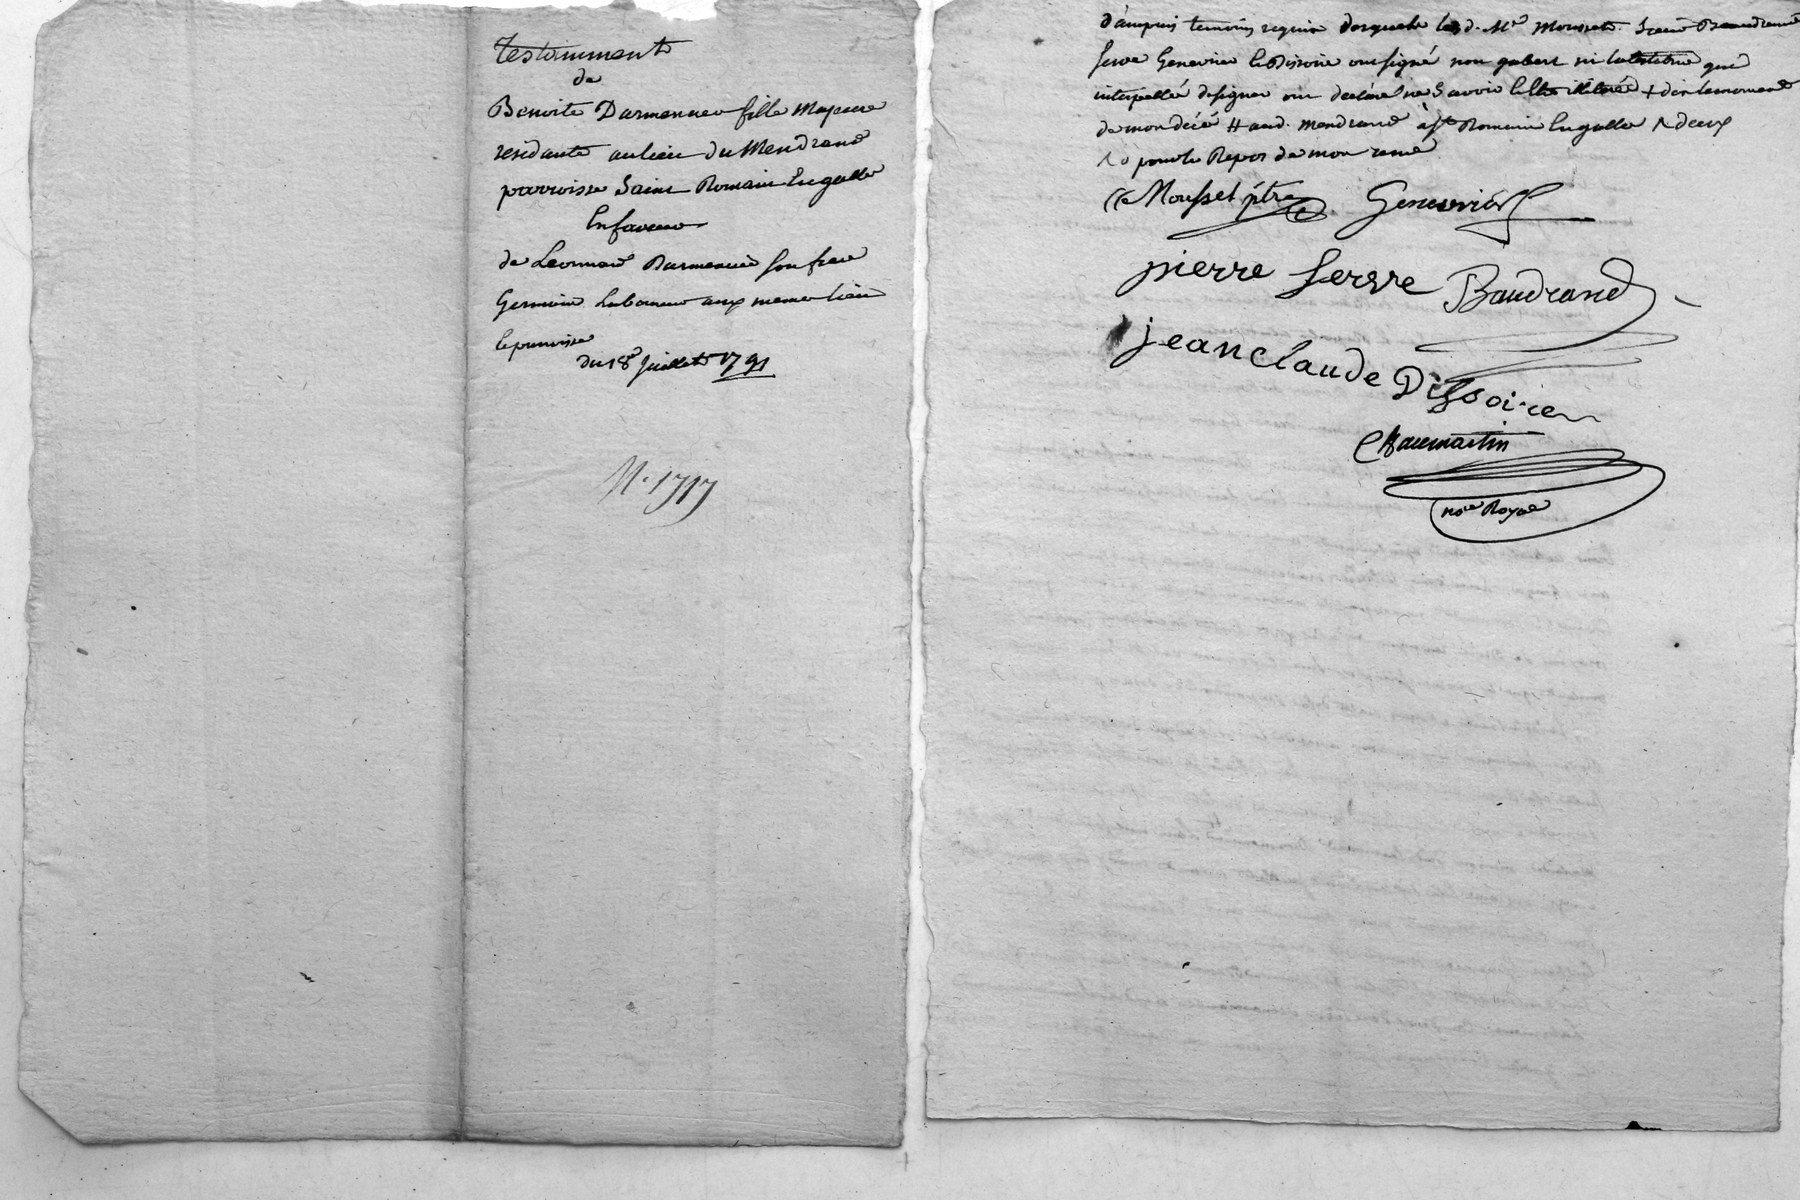 Testamment
de
Benoite Darmencier fille Majeure
residante au lieu du Mendrand
parroisse Saint Romain Engalle
En faveur
de Leonnard Darmencier son frere
Germain Laboureur aux meme lieu
et parroisse
du 18e Juillet 1791
N. 1717
d'ampuis temoins requis desquels led. Mre Mousset. Sieur Baudrand
serve Genevrier et Dissoire ont signé non gabert ni la testatrice qui
interpellé de signer ont declaré ne savoir
de mon décé # aud. Mendrand a st Romain Engalle deux
pour le Repos de mon
Mousset ptre Genevrier
pierre Serve Baudrand
jean claude Dissoire
Chaumartin
nore Royal